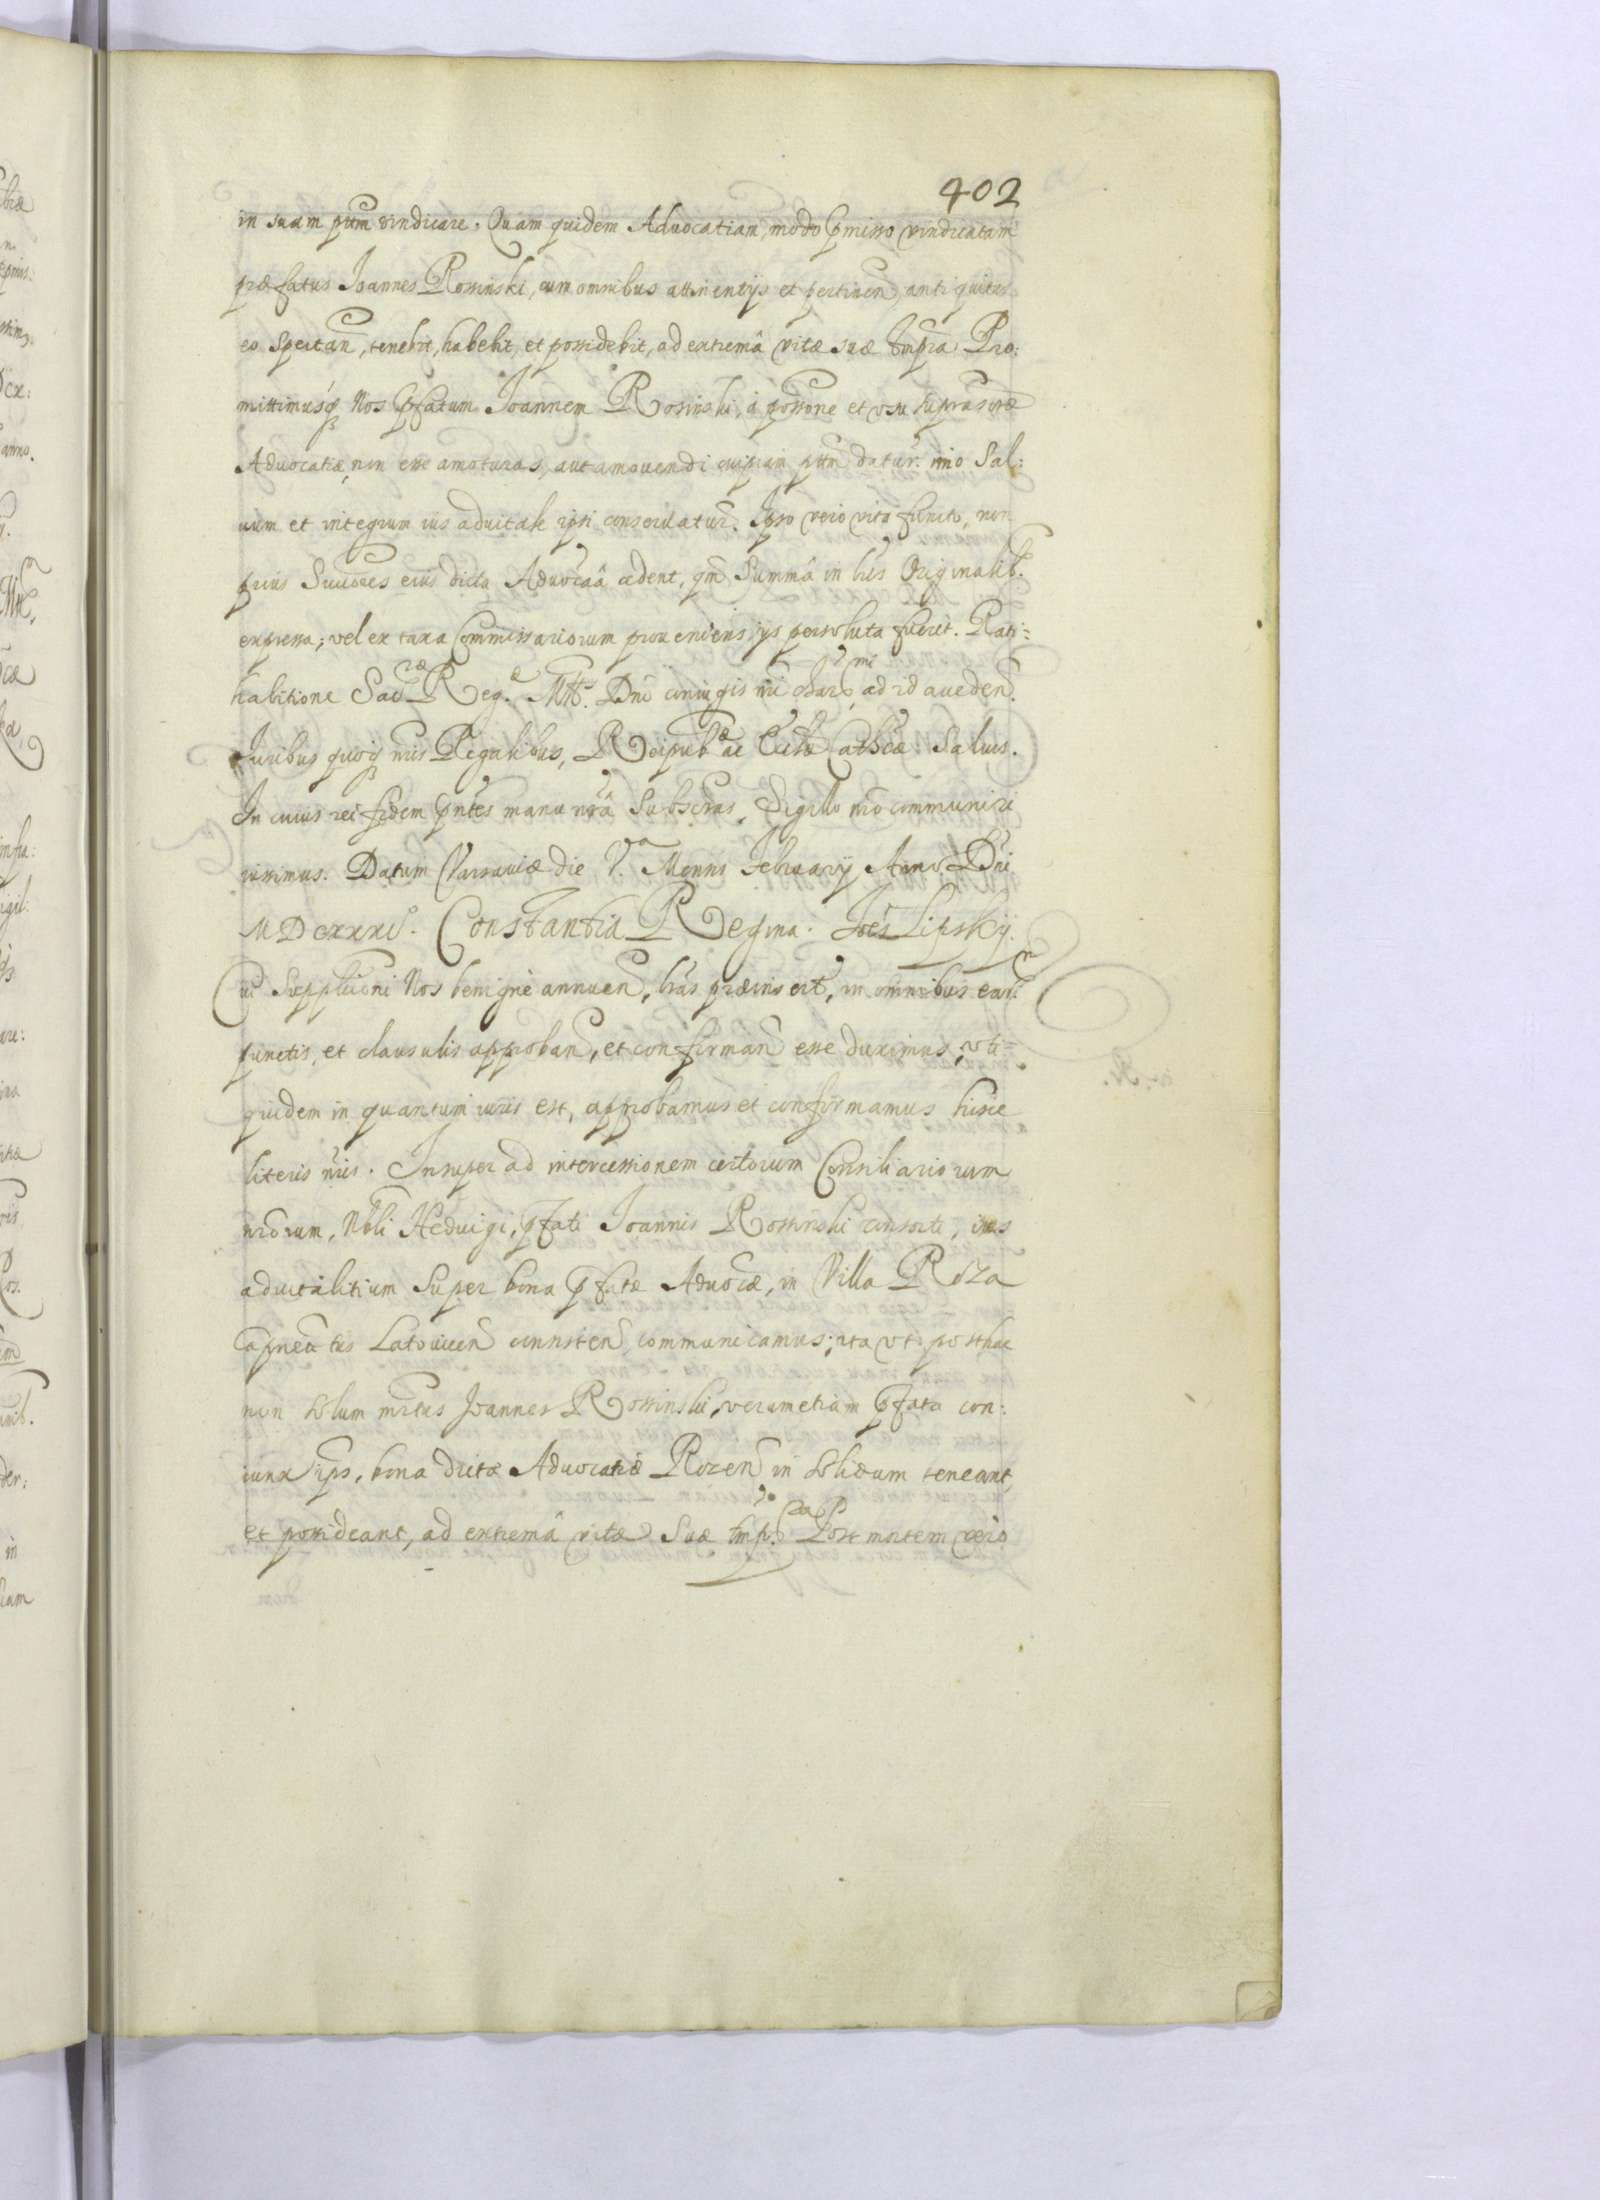 402
in suam ptem vindicare. Quam quidem Advocatiam, modo pmisso vindicatam
præfatus Joannes Rossinski, cum omnibus attinentijs et pertinen, antiquitus
eo spectan, tenebit, habebit, et possidebit, ad extremâ vitæ suæ tempra. Pro:
mittimusq Nos pfatum Joannem Rosinski, à possone et usu suprascrtæ
Advocatiæ, non esse amoturas, aut amovendi cuipiam ptem datur. imo Sal:
uum et integrum ius aduitale ipsi conseruatur. Ipso vero vita functo, non
prius Succores eius dicta Advocaâ cedent, qm Summâ in lris Originalib.
expressa; vel ex taxa Commissariorum proveniens ijs persoluta fuerit. Rati:
habitione Sac. Reg. Mtt. Dni coniugis nri ad id acceden.
Iuribus quoq nris Regalibus, Reipub ac Ecclæ Cathcæ Saluis.
In cuius rei fidem pntes manu nra Subscras, Sigillo nro communiri
iussimus. Datum Varsaviæ die V. Mensis February Anno Dni
MDCXXXI. Constantia Regina. Joes Lipsky.
cui Supplicaoni Nos benigne annuen, lras præinsert, in omnibus ear
punctis, et clausulis approban, et confirman esse duximus, vti=
quidem in quantum iuris est, approbamus et confirmamus hisce
literis nris. Insuper ad intercessionem certorum Consiliariorum
nrorum, Nbli Heduigi, pfati Joannis Rossinski consorti, ius
aduitalitium Super bona pfatæ Advocæ, in Villa Roza
Capneatus Latouicen consisten, communicamus; ita vt posthac
non solum mritus Joannes Rossinski, verumetiam pfata con:
iunx ips, bona dictæ Advocatiæ Rozen in solidum teneant,
et possideant, ad extremâ vitæ Suæ tmp. Post mortem vero